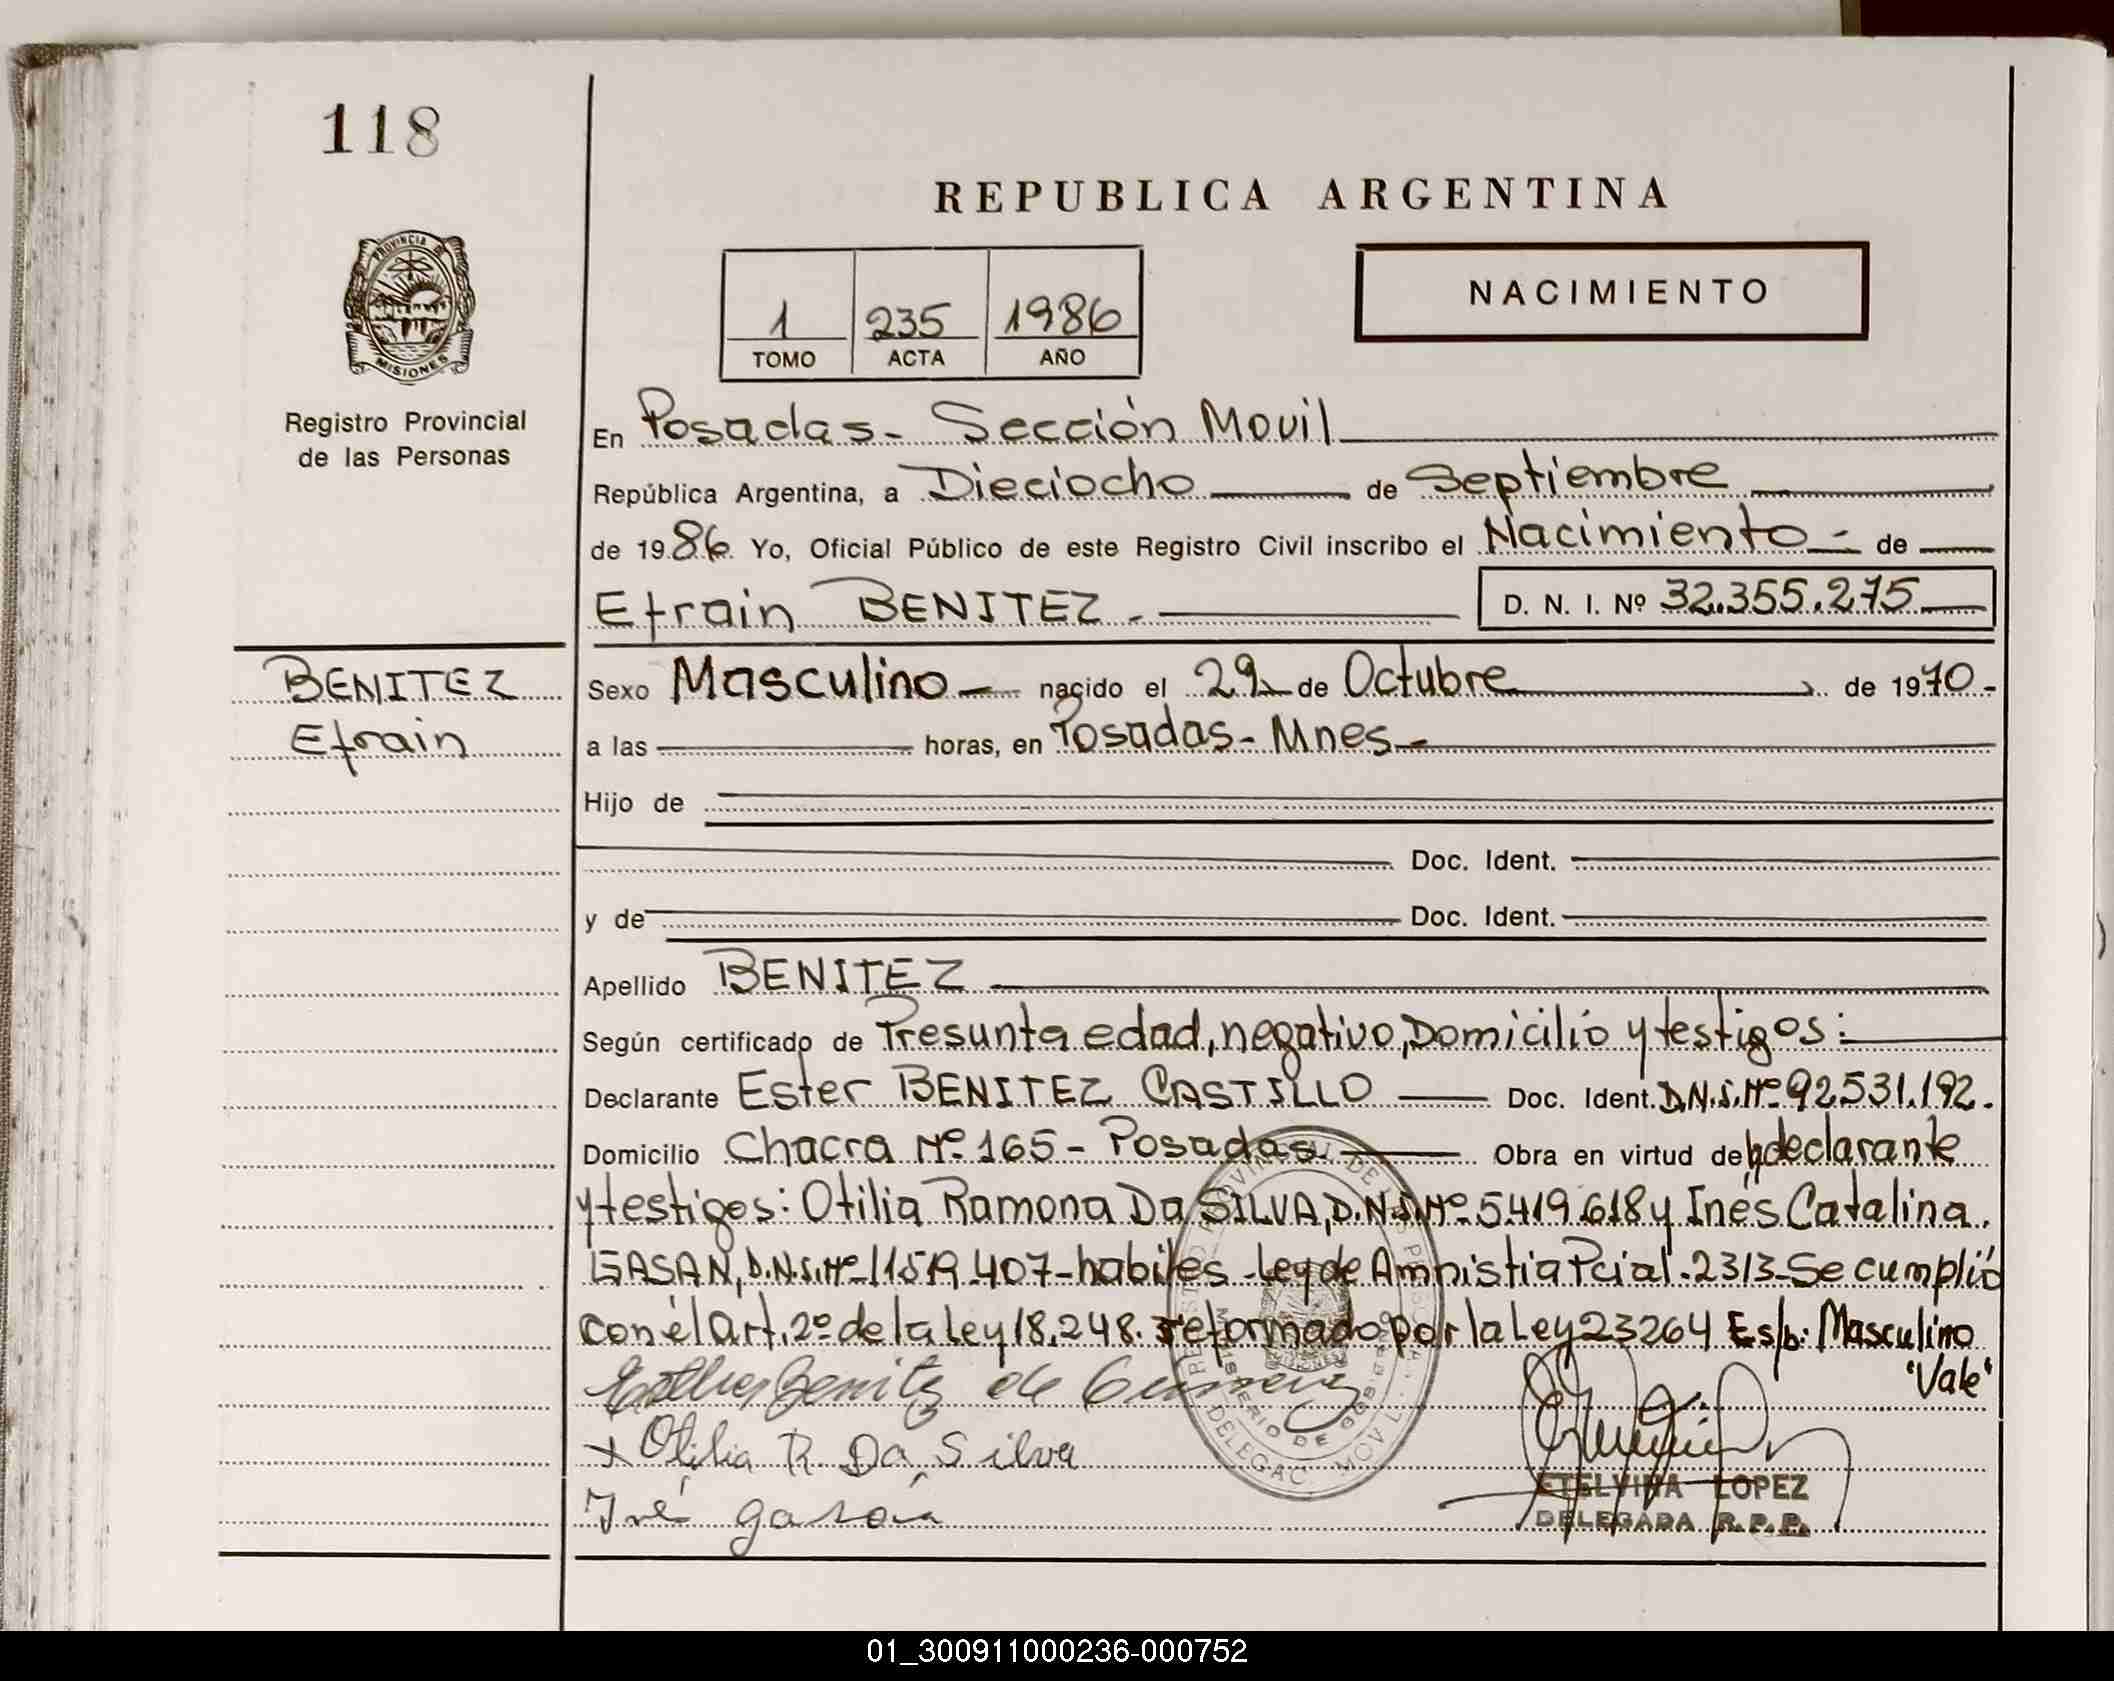 118
REPUBLICA ARGENTINA
PROVINCIA DE
MISIONES
Registro Provincial
de las Personas
1 235 1986
TOMO ACTA AÑO
NACIMIENTO
En Posadas - Sección Movil
República Argentina, a Dieciocho de Septiembre
de 1986. Yo, Oficial Público de este Registro Civil inscribo el Nacimiento - de
Efrain BENITEZ - D. N. I. Nº 32.355.275
BENITEZ
Efrain
Sexo Masculino - nacido el 29 de Octubre de 1970 -
a las horas, en Posadas - Mnes -
Hijo de
Doc. Ident.
y de Doc. Ident.
Apellido BENITEZ
Según certificado de Presunta edad, negativo, Domicilio y testigos:
Declarante Ester BENITEZ CASTILLO Doc. Ident. D.N.I. Nº 92.531.192.
Domicilio Chacra Nº 165 - Posadas Obra en virtud de la declarante
y testigos: Otilia Ramona Da SILVA, D.N.I. Nº 5.419.618 y Inés Catalina
GASAN, D.N.I. Nº 407 - habiles - Ley de Amnistia Pcial. 2313 - Se cumplió
con él Art. 2º de la Ley 18.248. reformado por la Ley 23264 Es/b: Masculino
"Vale"
Benitez de
x Otilia R. Da Silva
ETELVINA LOPEZ
DELEGADA R. P. P.
MINISTERIO DE GOBIERNO
DELEGAC. MOVIL
01_300911000236-000752